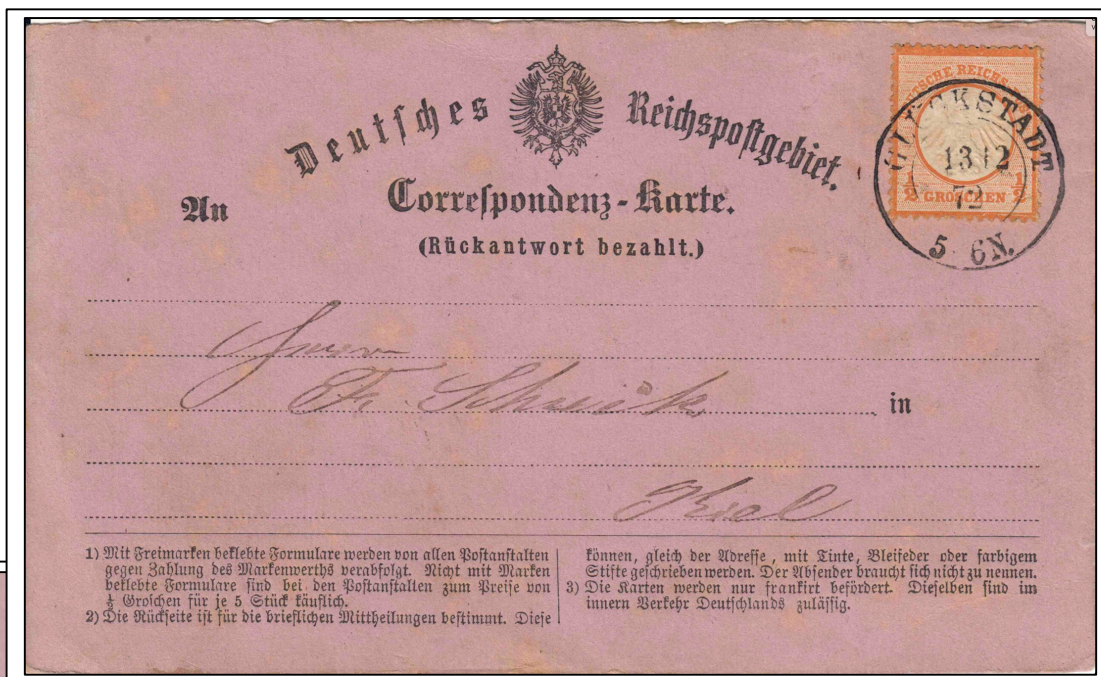 Deutsches Reichspostgebiet.
DEUTSCHE REICHS
½ GROSCHEN ½
GLÜCKSTADT
13 12
72
5-6N.
An
Correspondenz-Karte.
(Rückantwort bezahlt.)
Herrn
Fr.
in
Kiel
1) Mit Freimarken beklebte Formulare werden von allen Postanstalten
gegen Zahlung des Markenwerths verabfolgt. Nicht mit Marken
beklebte Formulare sind bei den Postanstalten zum Preise von
¼ Groschen für je 5 Stück käuflich.
2) Die Rückseite ist für die brieflichen Mittheilungen bestimmt. Diese
können, gleich der Adresse, mit Tinte, Bleifeder oder farbigem
Stifte geschrieben werden. Der Absender braucht sich nicht zu nennen.
3) Die Karten werden nur frankirt befördert. Dieselben sind im
innern Verkehr Deutschlands zulässig.